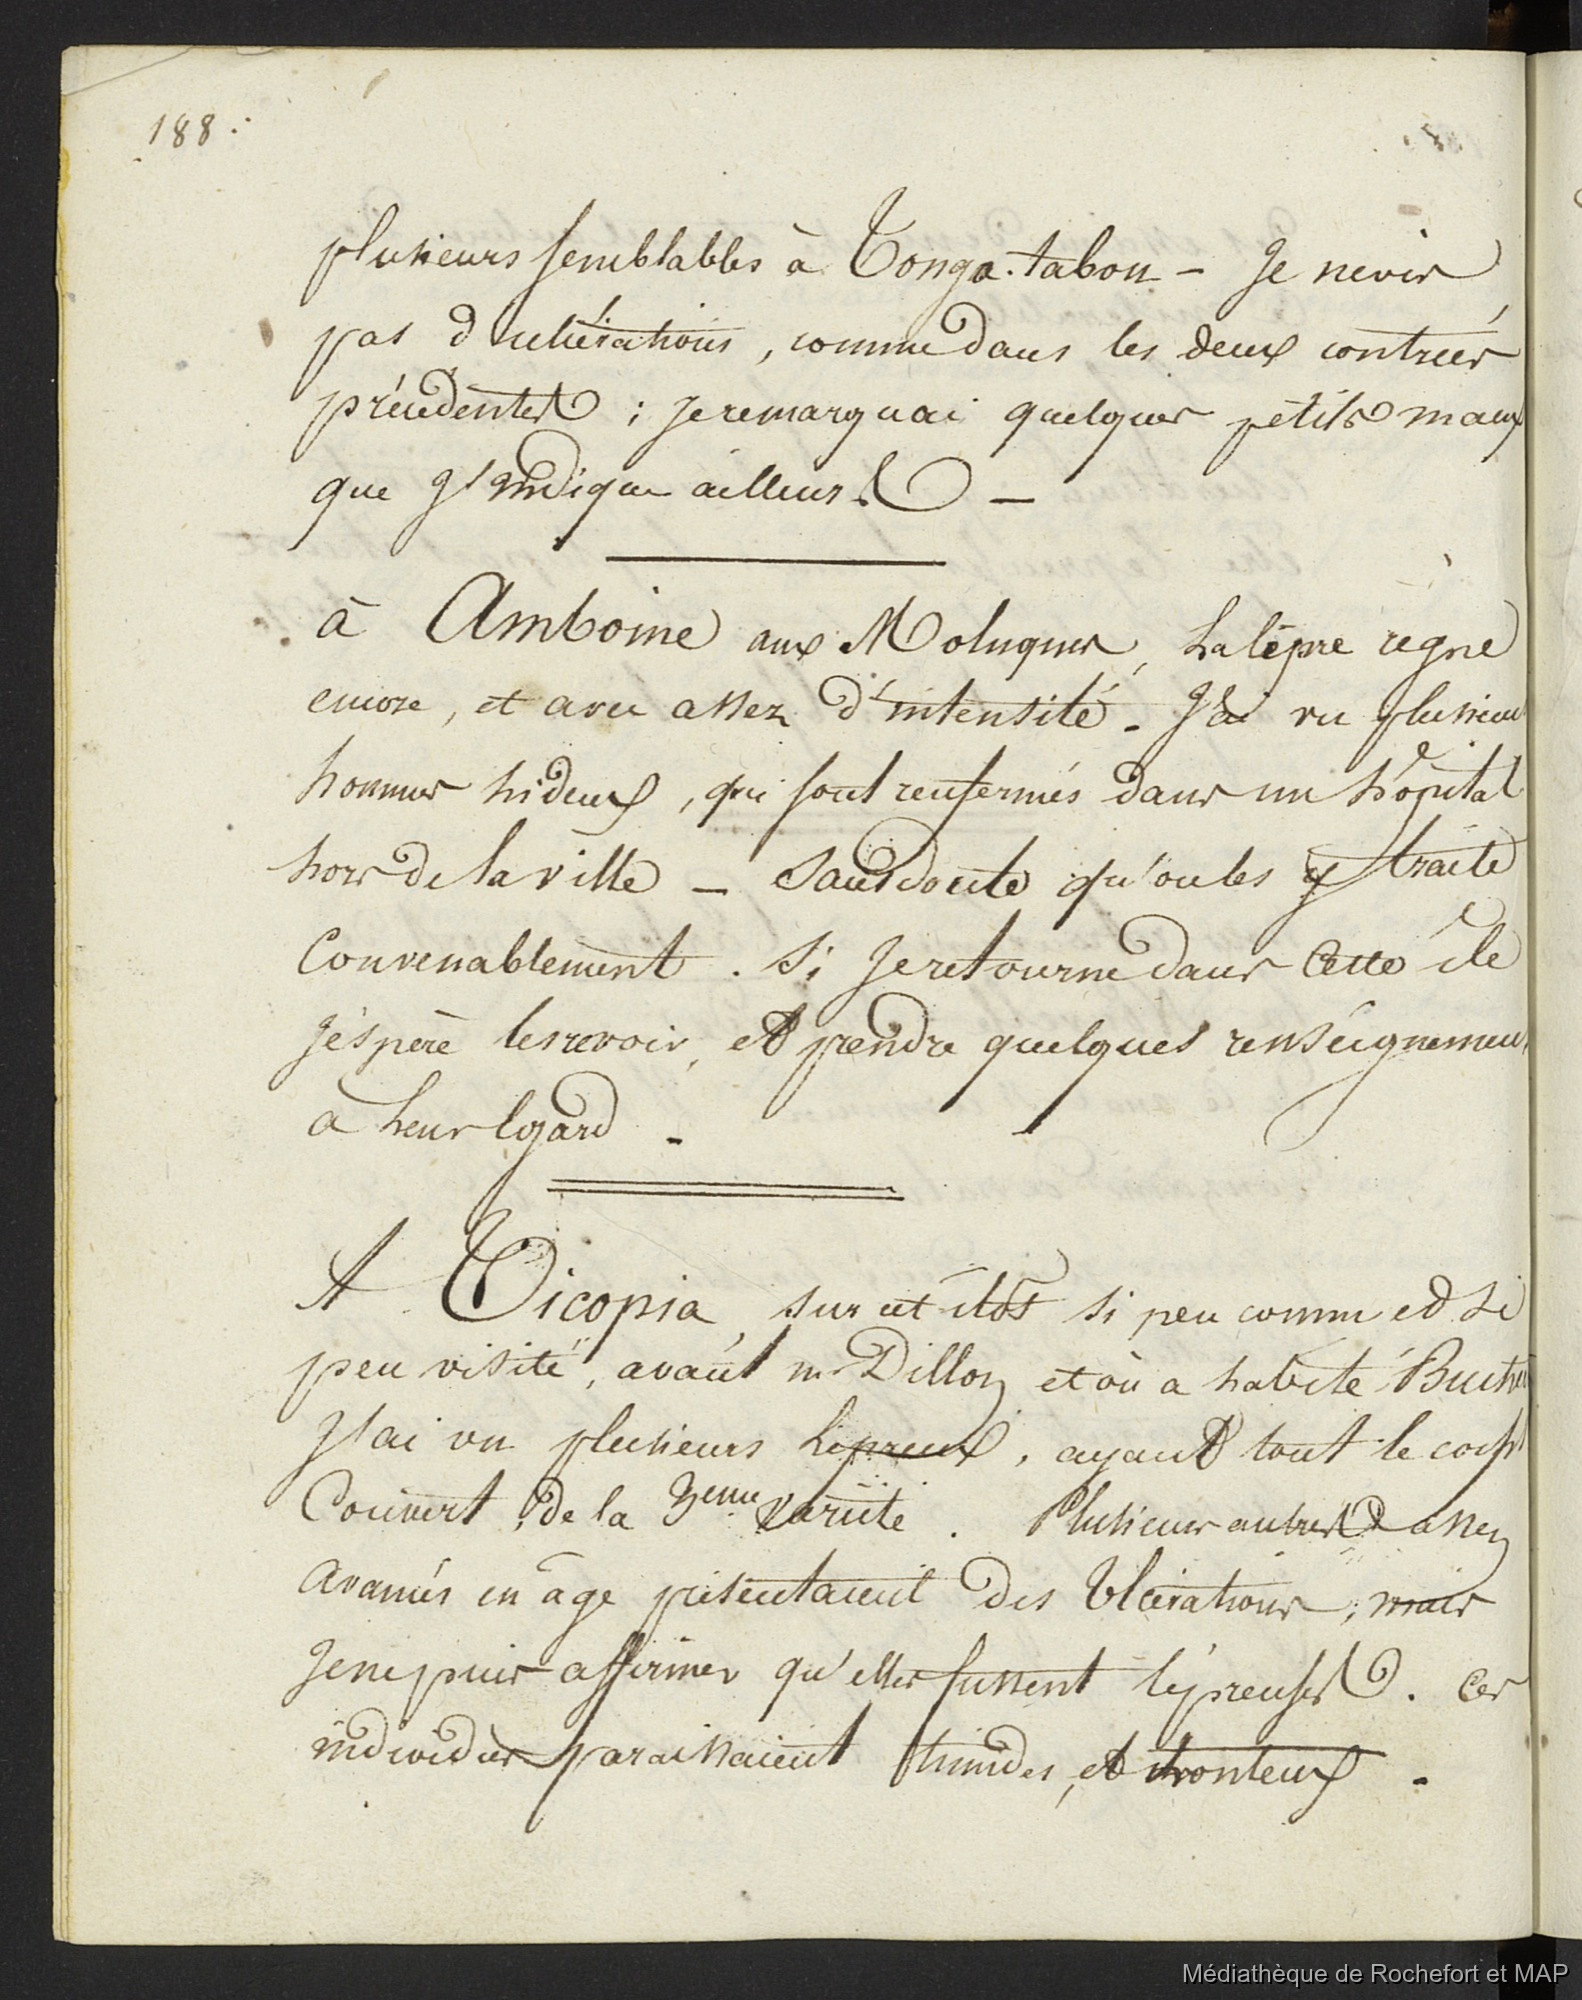 188.
plusieurs semblables à Tonga-tabou - Je ne vis
pas d'ulcérations, comme dans les deux contrées
précédentes ; je remarquai quelques petits maux
que j'indique ailleurs -
à Amboine aux Moluques, La lèpre règne
encore, et avec assez d'intensité - J'ai vu plusieurs
hommes hideux, qui sont renfermés dans un hôpital
hors de la ville - Sans doute qu'on les y traite
Convenablement. Si Je retourne dans Cette île
J'éspère les revoir, et prendre quelques renseignemens
a Leur Egard -
A Ticopia, sur cet ilôt si peu connu et si
peu visité, avant mr Dillon et où a habité
J'ai vu plusieurs Lépreux, ayant tout le corps
Couvert, de la 3eme variété. Plusieurs autres assez
avancés en âge présentaient des Ulcérations, mais
Je ne puis affirmer qu'elles fussent lépreuses. Ces
individus paraissaient timides, et honteux.
Médiathèque de Rochefort et MAP